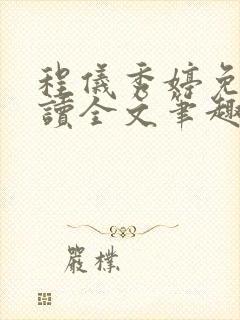 程儀秀婷免
讀全文筆趣
嚴樸